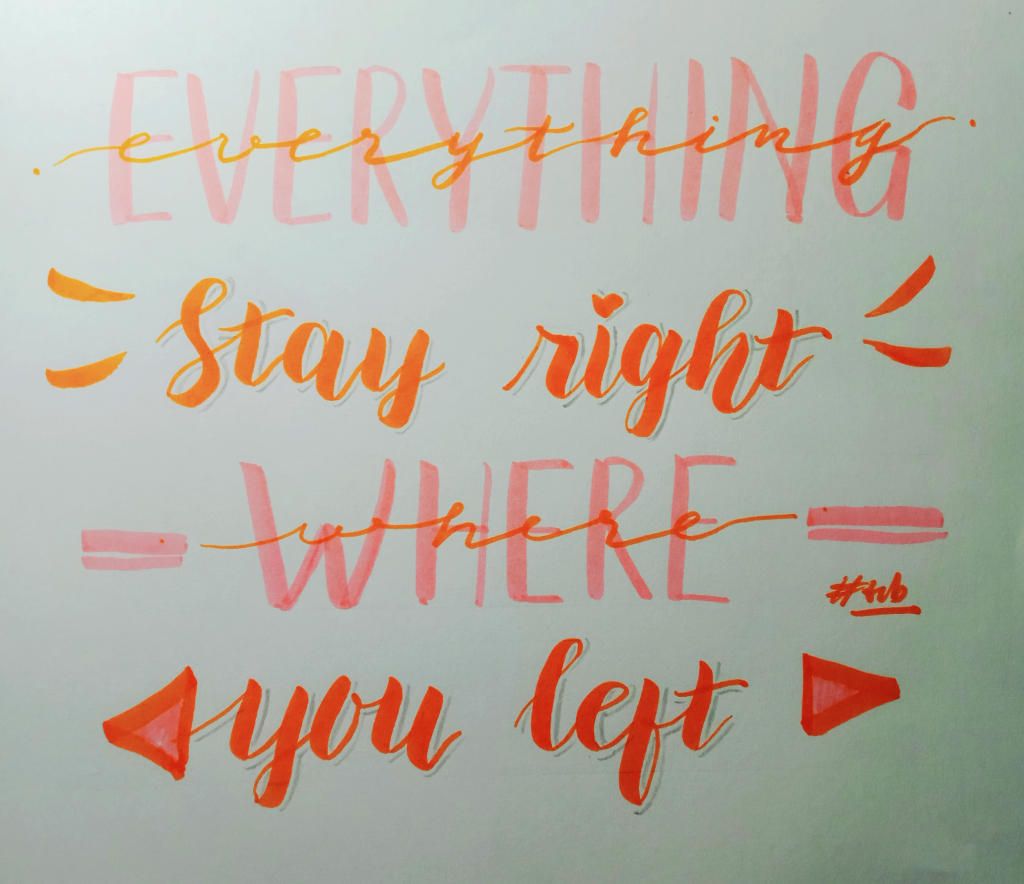 EVERYTHING
everything
Stay right
WHERE
where
you left